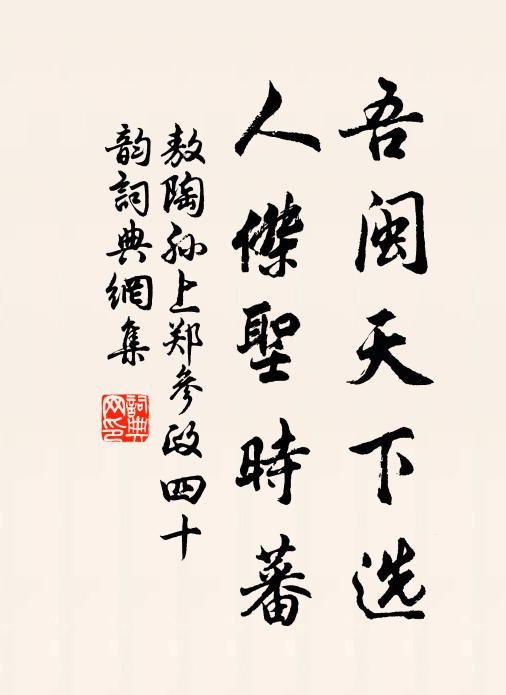 吾闽天下选
人傑聖時蕃
敖陶孙上郑参政四十
韵詞典網集
詞典
网印